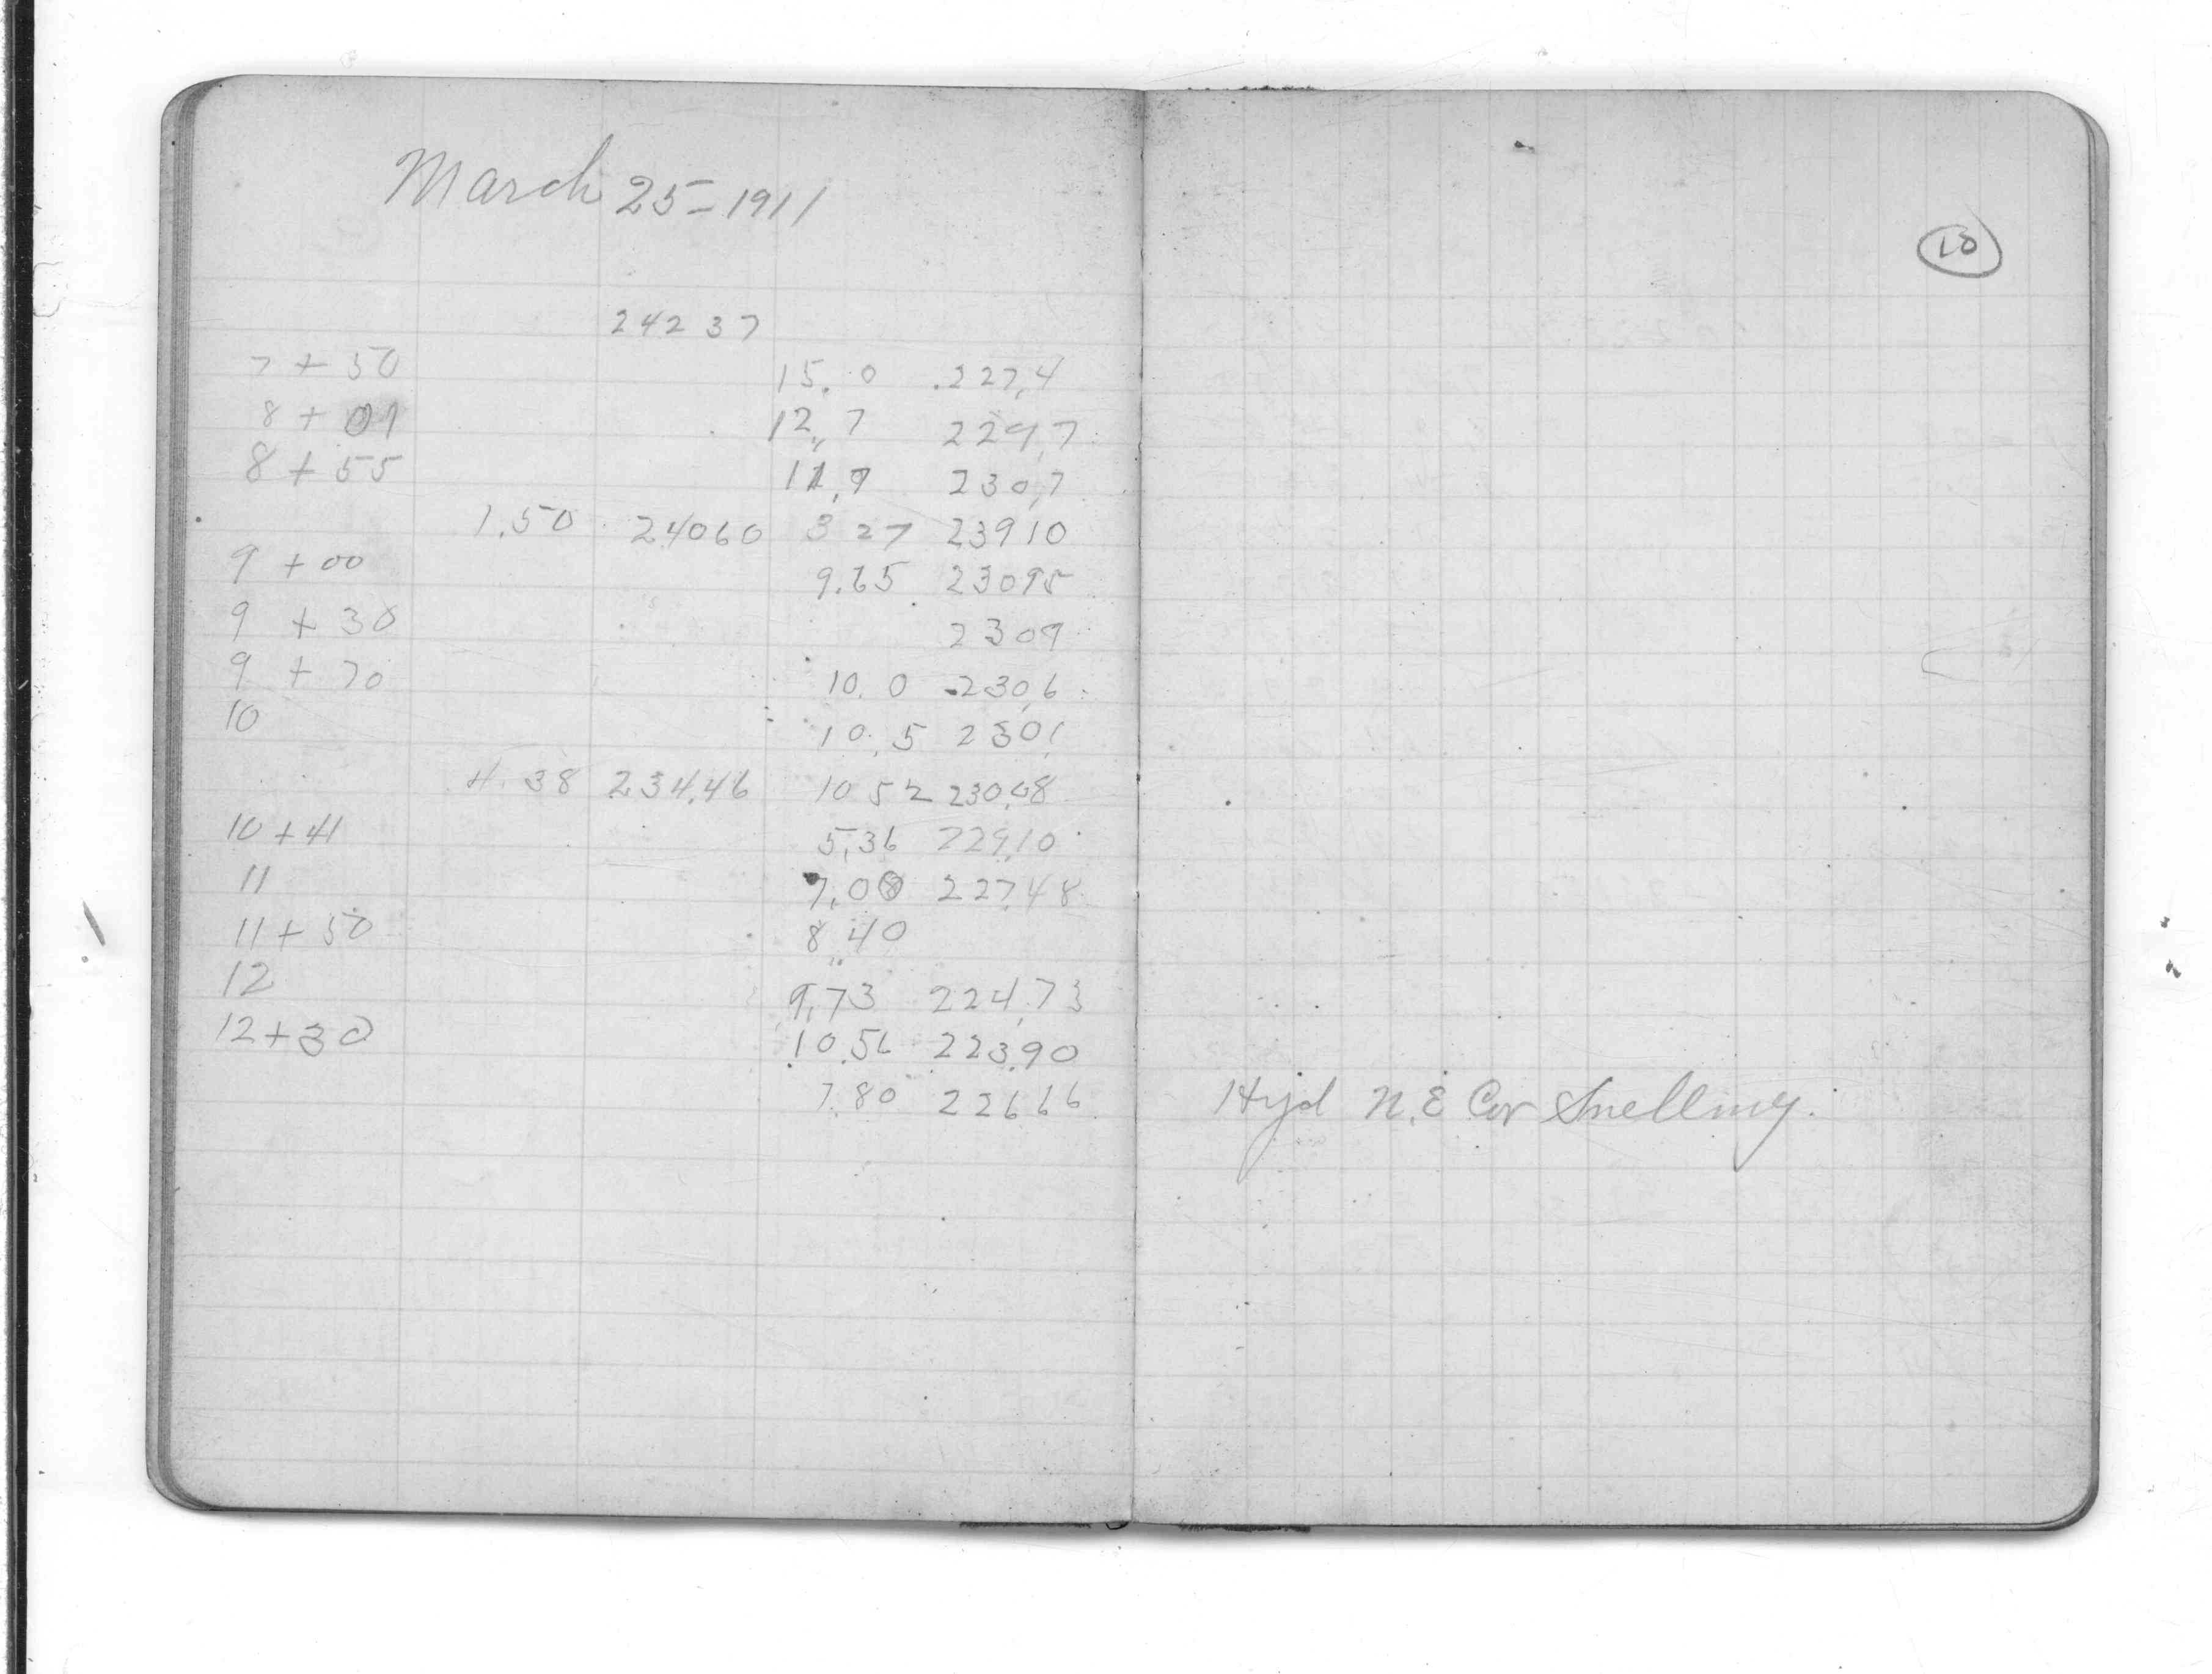 March 25 - 1911
24237
7 + 50 15.0 227.4
8 + 01 12.7 229.7
8 + 55 11.9 230.7
1.50 24060 3 27 23910
9 + 00 9.65 23095
9 + 30 2309
9 + 70 10.0 230.6
10 10.5 230.1
4.38 234.46 10 52 230.08
10 + 41 5.36 229.10
11 7.08 227.48
11 + 50 8.40
12 9.73 224.73
12 + 30 10.56 223.90
7.80 22666
10
Hyd N.E Cor Snelling.